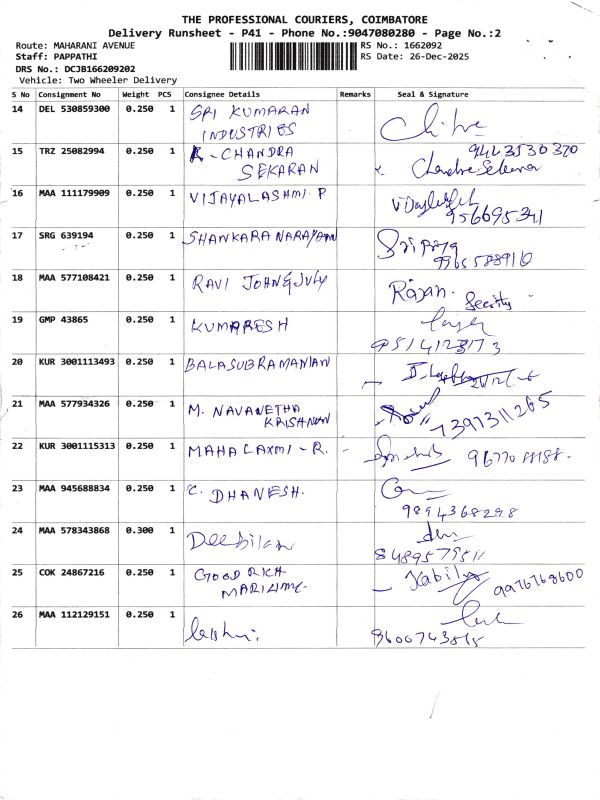 THE PROFESSIONAL COURIERS, COIMBATORE
Delivery Runsheet - P41 - Phone No.:9047080280 - Page No.:2
Route: MAHARANI AVENUE RS No.: 1662092
Staff: PAPPATHI RS Date: 26-Dec-2025
DRS No.: DCJB166209202
Vehicle: Two Wheeler Delivery
S No Consignment No Weight PCS Consignee Details Remarks Seal & Signature
14 DEL 530859300 0.250 1 SRI KUMARAN
INDUSTRIES
15 TRZ 25082994 0.250 1 K-CHANDRA
SEKARAN
16 MAA 111179909 0.250 1 VIJAYALASHMI P
956695341
17 SRG 639194 0.250 1 SHANKARA NARAYANAN
18 MAA 577108421 0.250 1 RAVI JOHN & JULY Rajan. Security
19 GMP 43865 0.250 1 KUMARESH
9514123173
20 KUR 3001113493 0.250 1 BALASUBRAMANIAN
21 MAA 577934326 0.250 1 M. NAVANETHA
KRISHNAN 7397311265
22 KUR 3001115313 0.250 1 MAHALAXMI - R.
23 MAA 945688834 0.250 1 C. DHANESH.
9894368298
24 MAA 578343868 0.300 1
8489579511
25 COK 24867216 0.250 1 GOOD RICH
MARITIME. 9976768600
26 MAA 112129151 0.250 1